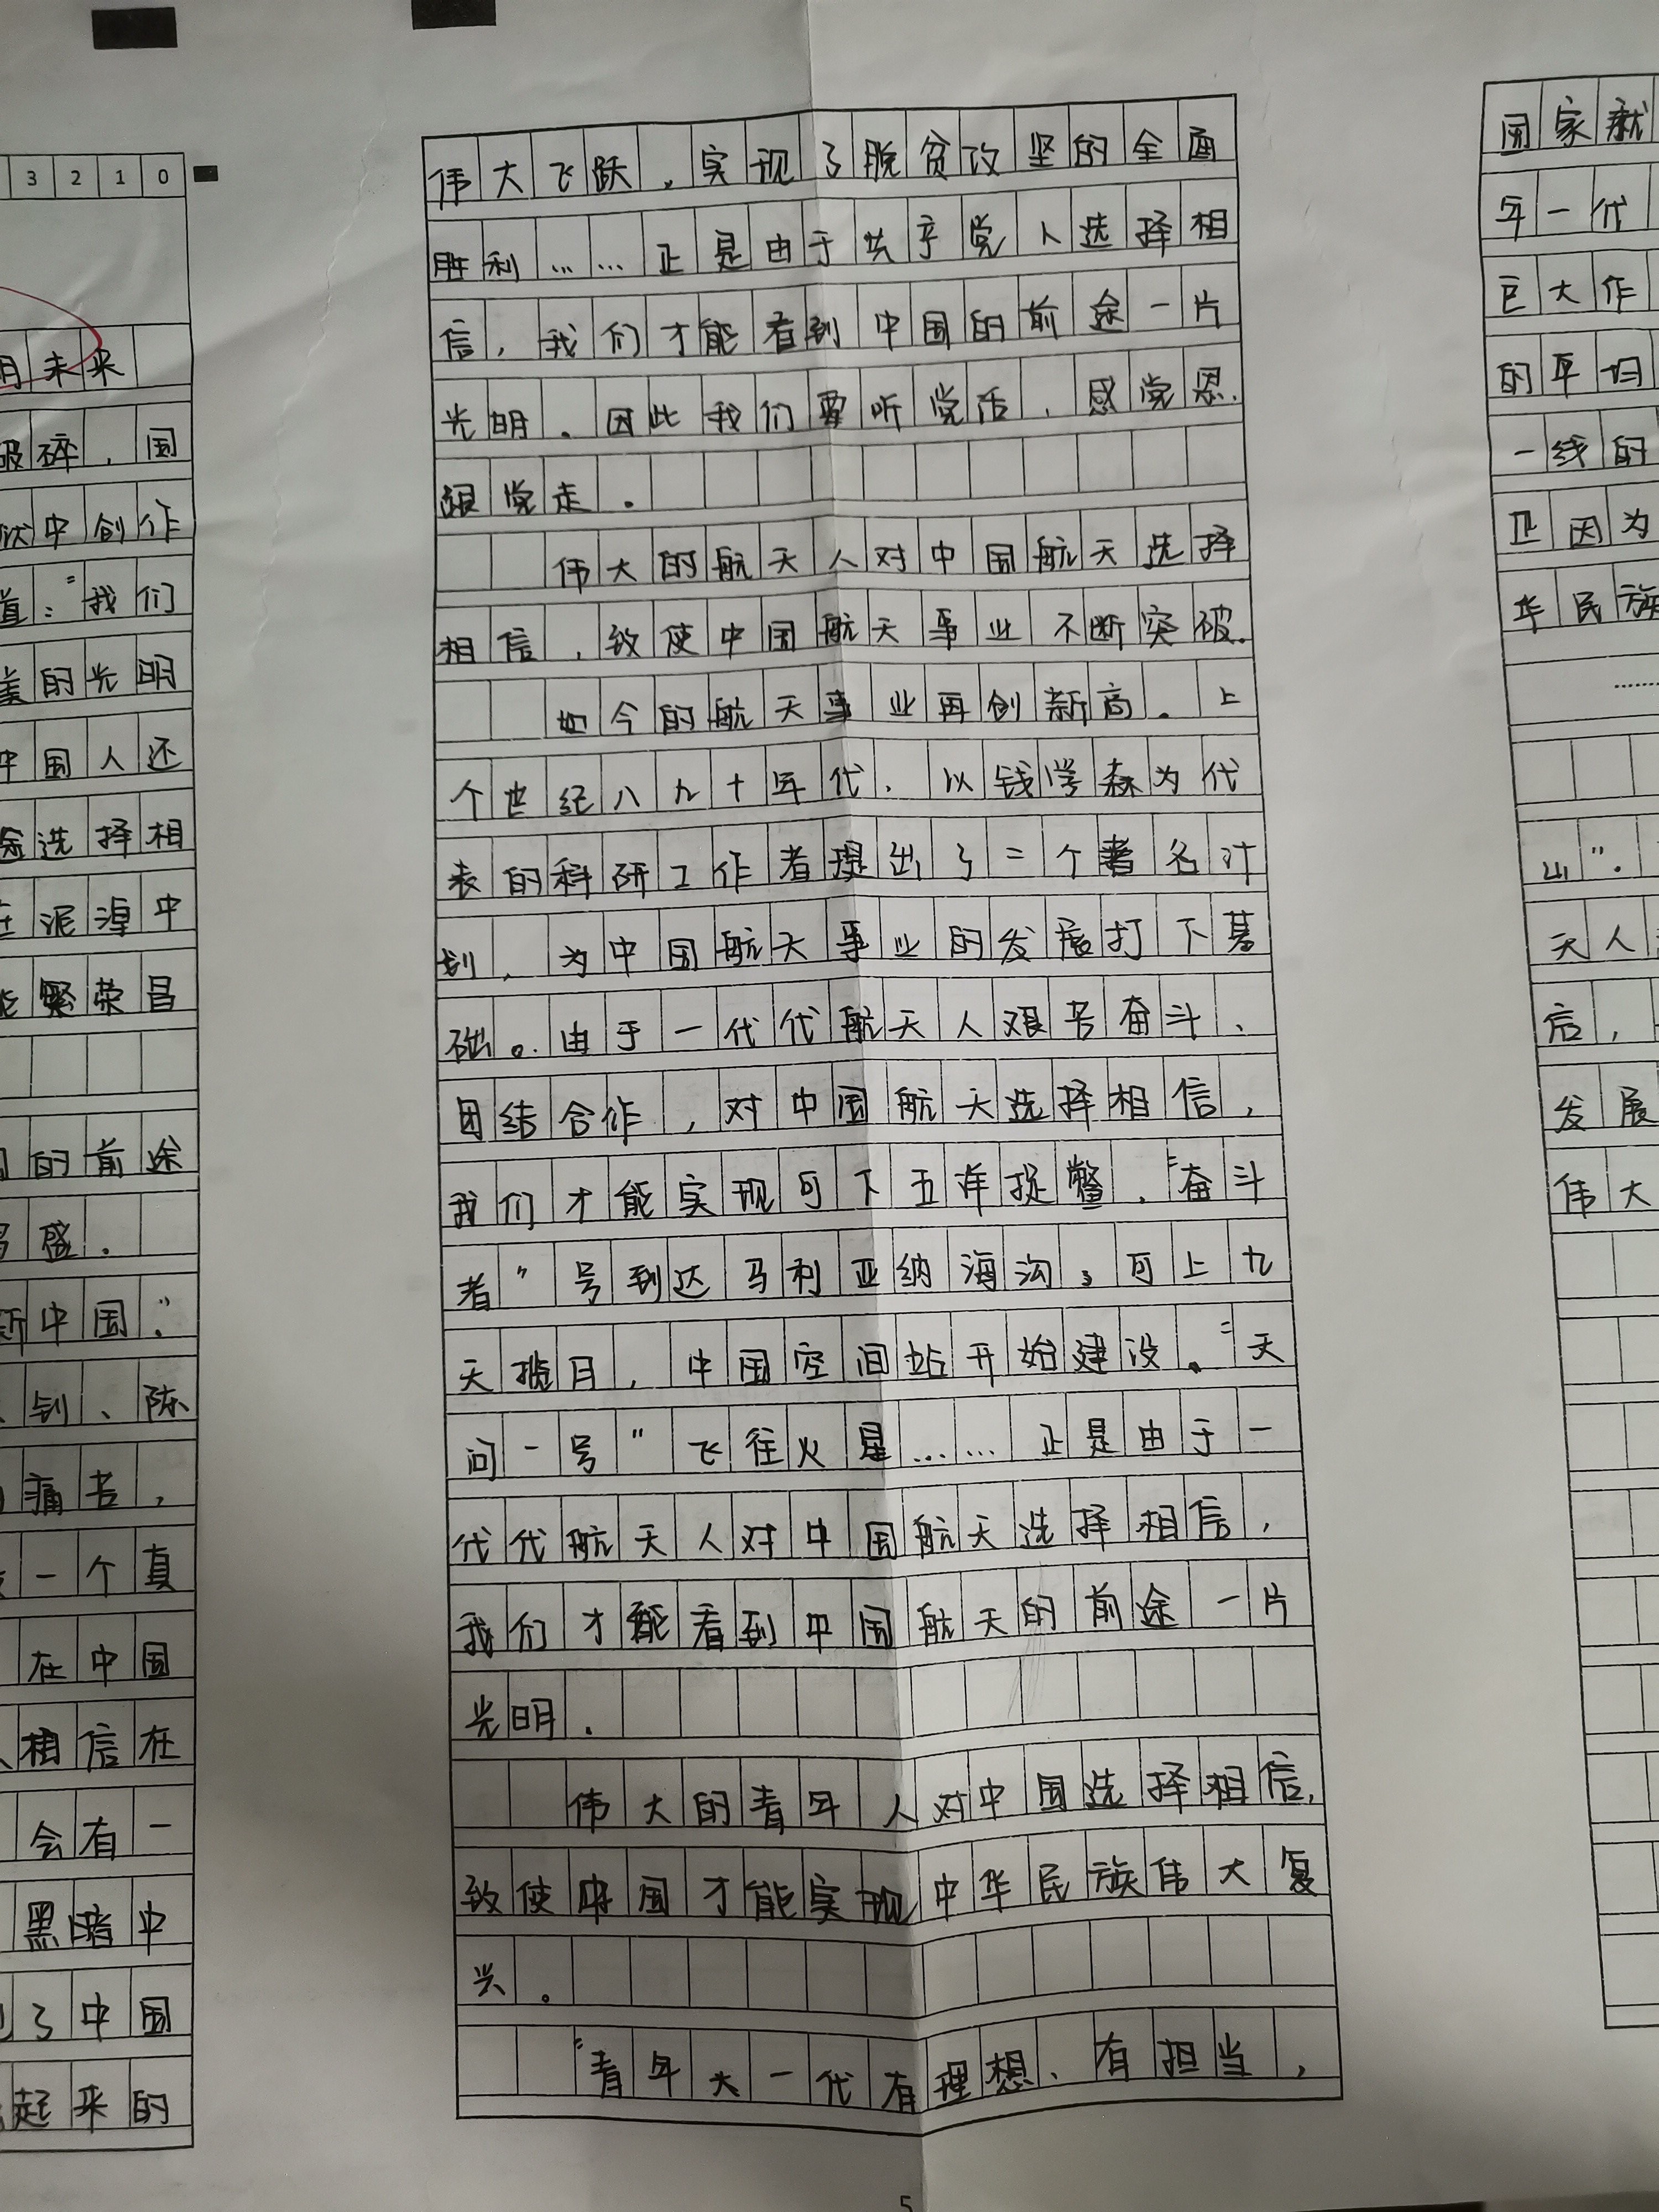 3 2 1 0
明未来
破碎，国
狱中创作
道：“我们
美的光明
中国人还
途选择相
在泥淖中
能繁荣昌
的前途
昌盛．
新中国．”
钊、陈
痛苦，
一个真
在中国
相信在
会有一
黑暗中
了中国
起来的
伟大飞跃，实现了脱贫攻坚的全面
胜利……正是由于共产党人选择相
信，我们才能看到中国的前途一片
光明．因此我们要听党话、感党恩、
跟党走．
伟大的航天人对中国航天选择
相信，致使中国航天事业不断突破．
如今的航天事业再创新高．上
个世纪八九十年代，以钱学森为代
表的科研工作者提出了三个著名计
划，为中国航天事业的发展打下基
础。由于一代代航天人艰苦奋斗、
团结合作，对中国航天选择相信，
我们才能实现可下五洋捉鳖，“奋斗
者”号到达马利亚纳海沟；可上九
天揽月，中国空间站开始建设。“天
问一号”飞往火星……正是由于一
代代航天人对中国航天选择相信，
我们才能看到中国航天的前途一片
光明．
伟大的青年人对中国选择相信，
致使中国才能实现中华民族伟大复
兴。
“青年大一代有理想、有担当，
5
国家就
年一代
巨大作
的平均
一线的
因为
华民族
山”．
天人
信，
发展
伟大